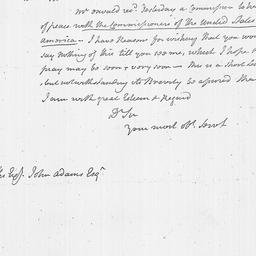 Mr oswald recd. Yesterday a Commission to
of peace with the Commissioners of the United States
america — I have Reason for wishing that you wou
say nothing of this till you see me, which I hope &
pray may be soon & very soon — this is a short Le
but notwithstanding its Brevity be assured tha
I am with great Esteem & Regard
Dr Sir
Your most obt. Servt
Esqr. John Adams Esqr.